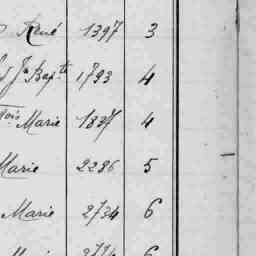 René 1397 3
Jn Bapte 1793 4
Marie 1837 4
Marie 2286 5
Marie 2734 6